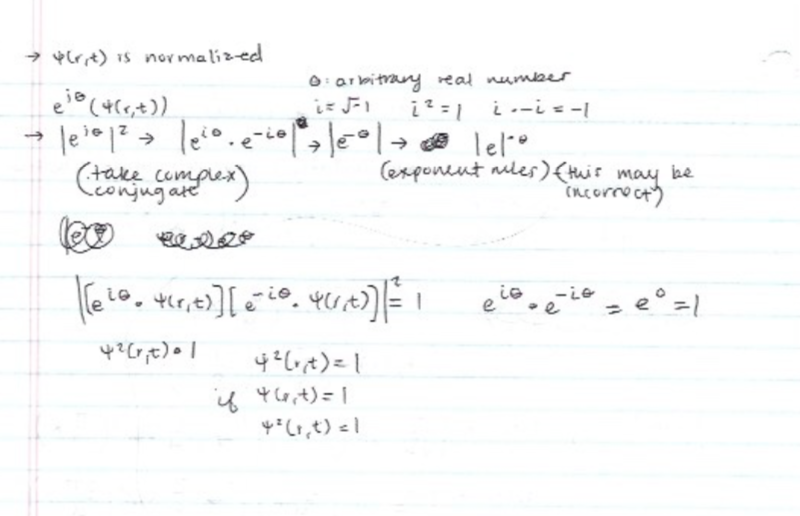 → ψ(r,t) is normalized
θ: arbitrary real number
e^{iθ}(ψ(r,t)) i = √-1 i² = 1 i · -i = -1
→ |e^{iθ}|² → |e^{iθ} · e^{-iθ}| → |e^{-θ}| → |e|^{-θ}
(take complex conjugate) (exponent rules) (this may be incorrect)
|[e^{iθ} · ψ(r,t)][e^{-iθ} · ψ(r,t)]|² = 1 e^{iθ} · e^{-iθ} = e⁰ = 1
ψ²(r,t) · 1 ψ²(r,t) = 1
if ψ(r,t) = 1
ψ²(r,t) = 1